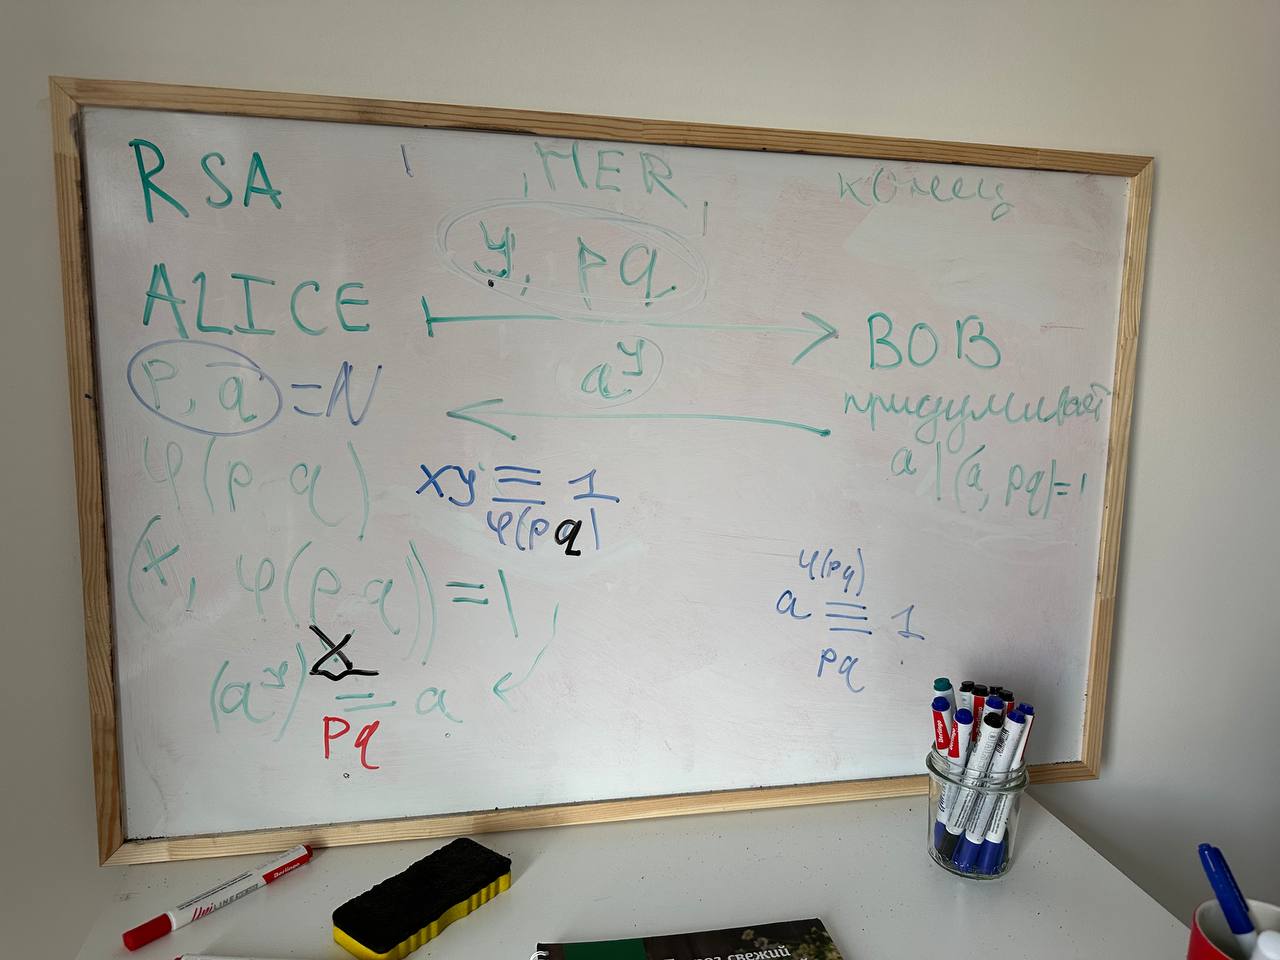 RSA
MER
конец
y, pq
ALICE
BOB
P, q = N
a^y
придумывает
a | (a, pq) = 1
φ(p q)
xy ≡ 1
φ(pq)
(x, φ(p q)) = 1
φ(pq)
a ≡ 1
pq
(a^y)^x ≡ a
pq
Berlingo
UniLINE
свежий